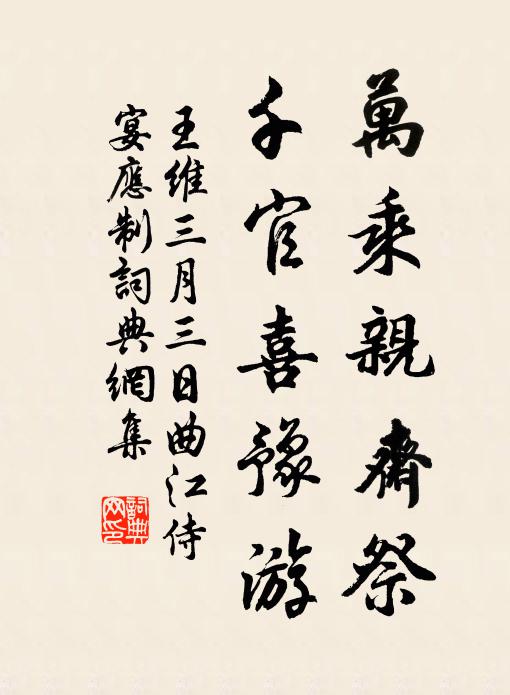 萬乘親齋祭
千官喜豫游
王維三月三日曲江侍
宴應制詞典網集
詞典
网印